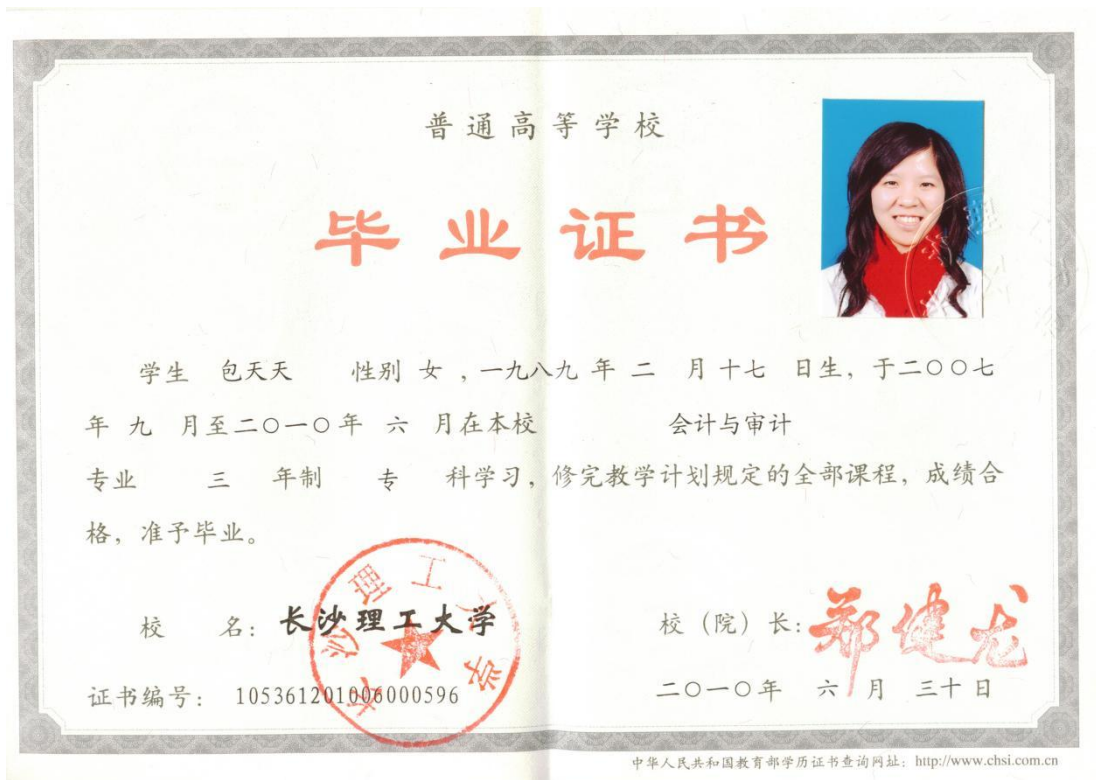 普通高等学校
毕业证书
学生 包天天 性别 女 ，一九八九 年 二 月 十七 日生，于二〇〇七
年 九 月至二〇一〇年 六 月在本校 会计与审计
专业 三 年制 专 科学习，修完教学计划规定的全部课程，成绩合
格，准予毕业。
校 名：长沙理工大学
长沙理工大学
校（院）长：郑健龙
证书编号：105361201006000596
二〇一〇年 六 月 三十 日
中华人民共和国教育部学历证书查询网址：http://www.chsi.com.cn